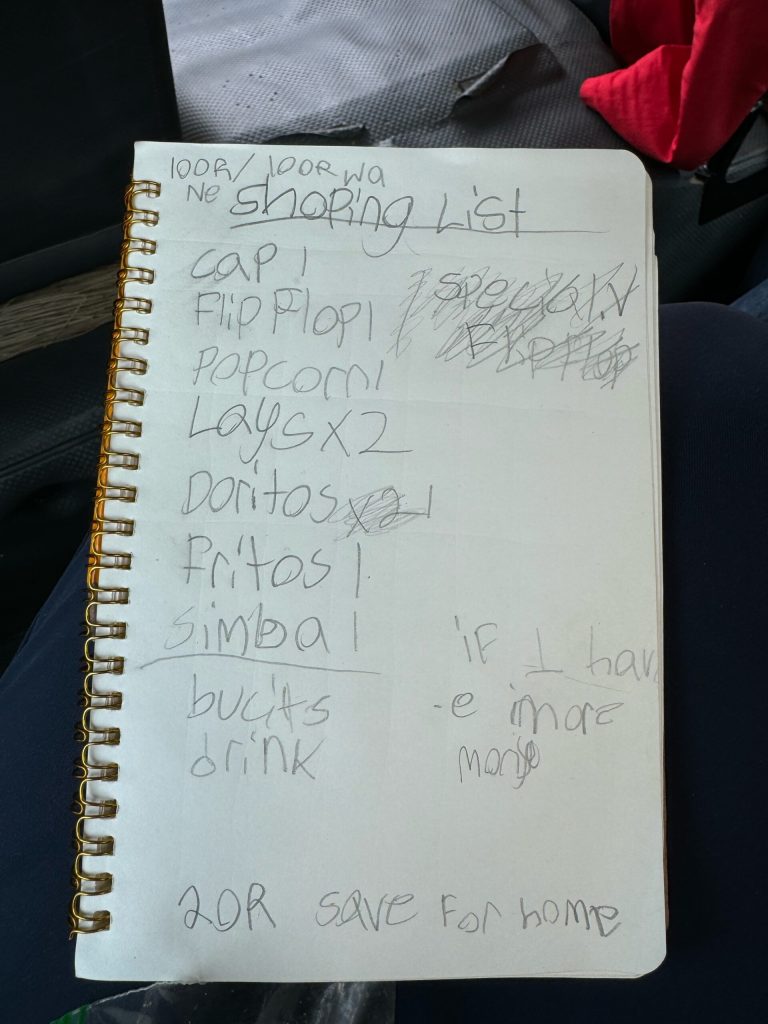 100R/100RWa
Ne
Shoping List
cap 1
Flip Flop 1
Special.V
Flip Flop
Popcorn 1
Lays x2
Doritos x2 1
Fritos 1
simba 1
if I hav
-e more
bucits
drink
20R save For home